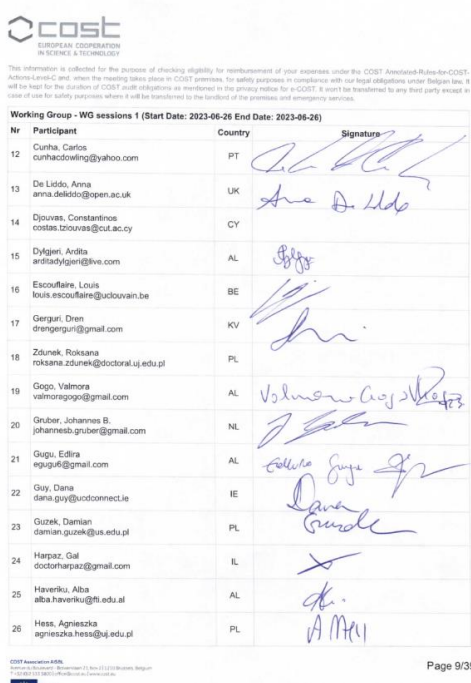 cost
EUROPEAN COOPERATION
IN SCIENCE & TECHNOLOGY
This information is collected for the purpose of checking eligibility for reimbursement of your expenses under the COST Annotated-Rules-for-COST-
Actions-Level-C and, when the meeting takes place in COST premises, for safety purposes in compliance with our legal obligations under Belgian law. It
will be kept for the duration of COST audit obligations as mentioned in the privacy notice for e-COST. It won't be transferred to any third party except in
case of use for safety purposes where it will be transferred to the landlord of the premises and emergency services.
Working Group - WG sessions 1 (Start Date: 2023-06-26 End Date: 2023-06-26)
Nr Participant Country Signature
12 Cunha, Carlos PT
cunhacdowling@yahoo.com
13 De Liddo, Anna UK Anna De Liddo
anna.deliddo@open.ac.uk
14 Djouvas, Constantinos CY
costas.tziouvas@cut.ac.cy
15 Dylgjeri, Ardita AL
arditadylgjeri@live.com
16 Escouflaire, Louis BE
louis.escouflaire@uclouvain.be
17 Gerguri, Dren KV
drengerguri@gmail.com
18 Zdunek, Roksana PL
roksana.zdunek@doctoral.uj.edu.pl
19 Gogo, Valmora AL Valmora Gogo
valmoragogo@gmail.com
20 Gruber, Johannes B. NL
johannesb.gruber@gmail.com
21 Gugu, Edlira AL Edlira Gugu
egugu6@gmail.com
22 Guy, Dana IE Dana
dana.guy@ucdconnect.ie
23 Guzek, Damian PL Guzek
damian.guzek@us.edu.pl
24 Harpaz, Gal IL
doctorharpaz@gmail.com
25 Haveriku, Alba AL
alba.haveriku@fti.edu.al
26 Hess, Agnieszka PL A Hess
agnieszka.hess@uj.edu.pl
COST Association AISBL
Page 9/39